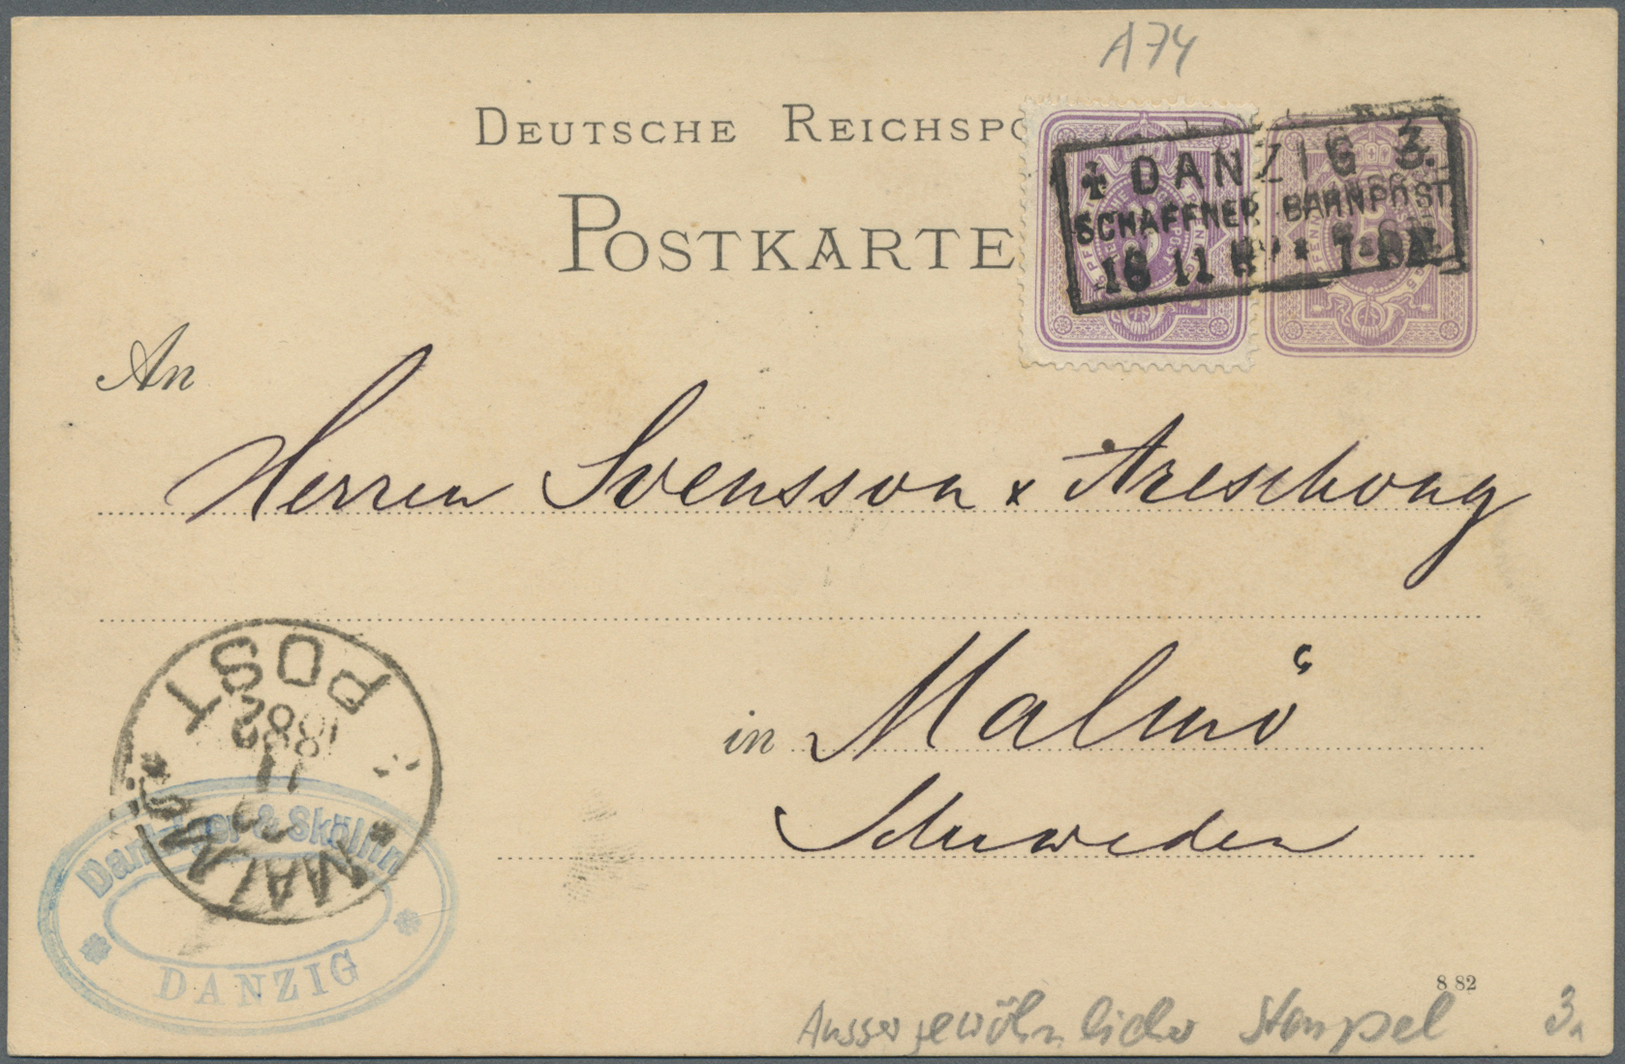 A74
DEUTSCHE REICHSPO
POSTKARTE
✠ DANZIG 3.
SCHAFFNER. BAHNPOST.
18 11
An
Herren Svensson & Areschoug
in Malmö
Schweden
POST
1882
11
MALMÖ
& Sköllin
DANZIG
8 82
Aussergewöhnlicher Stempel
3